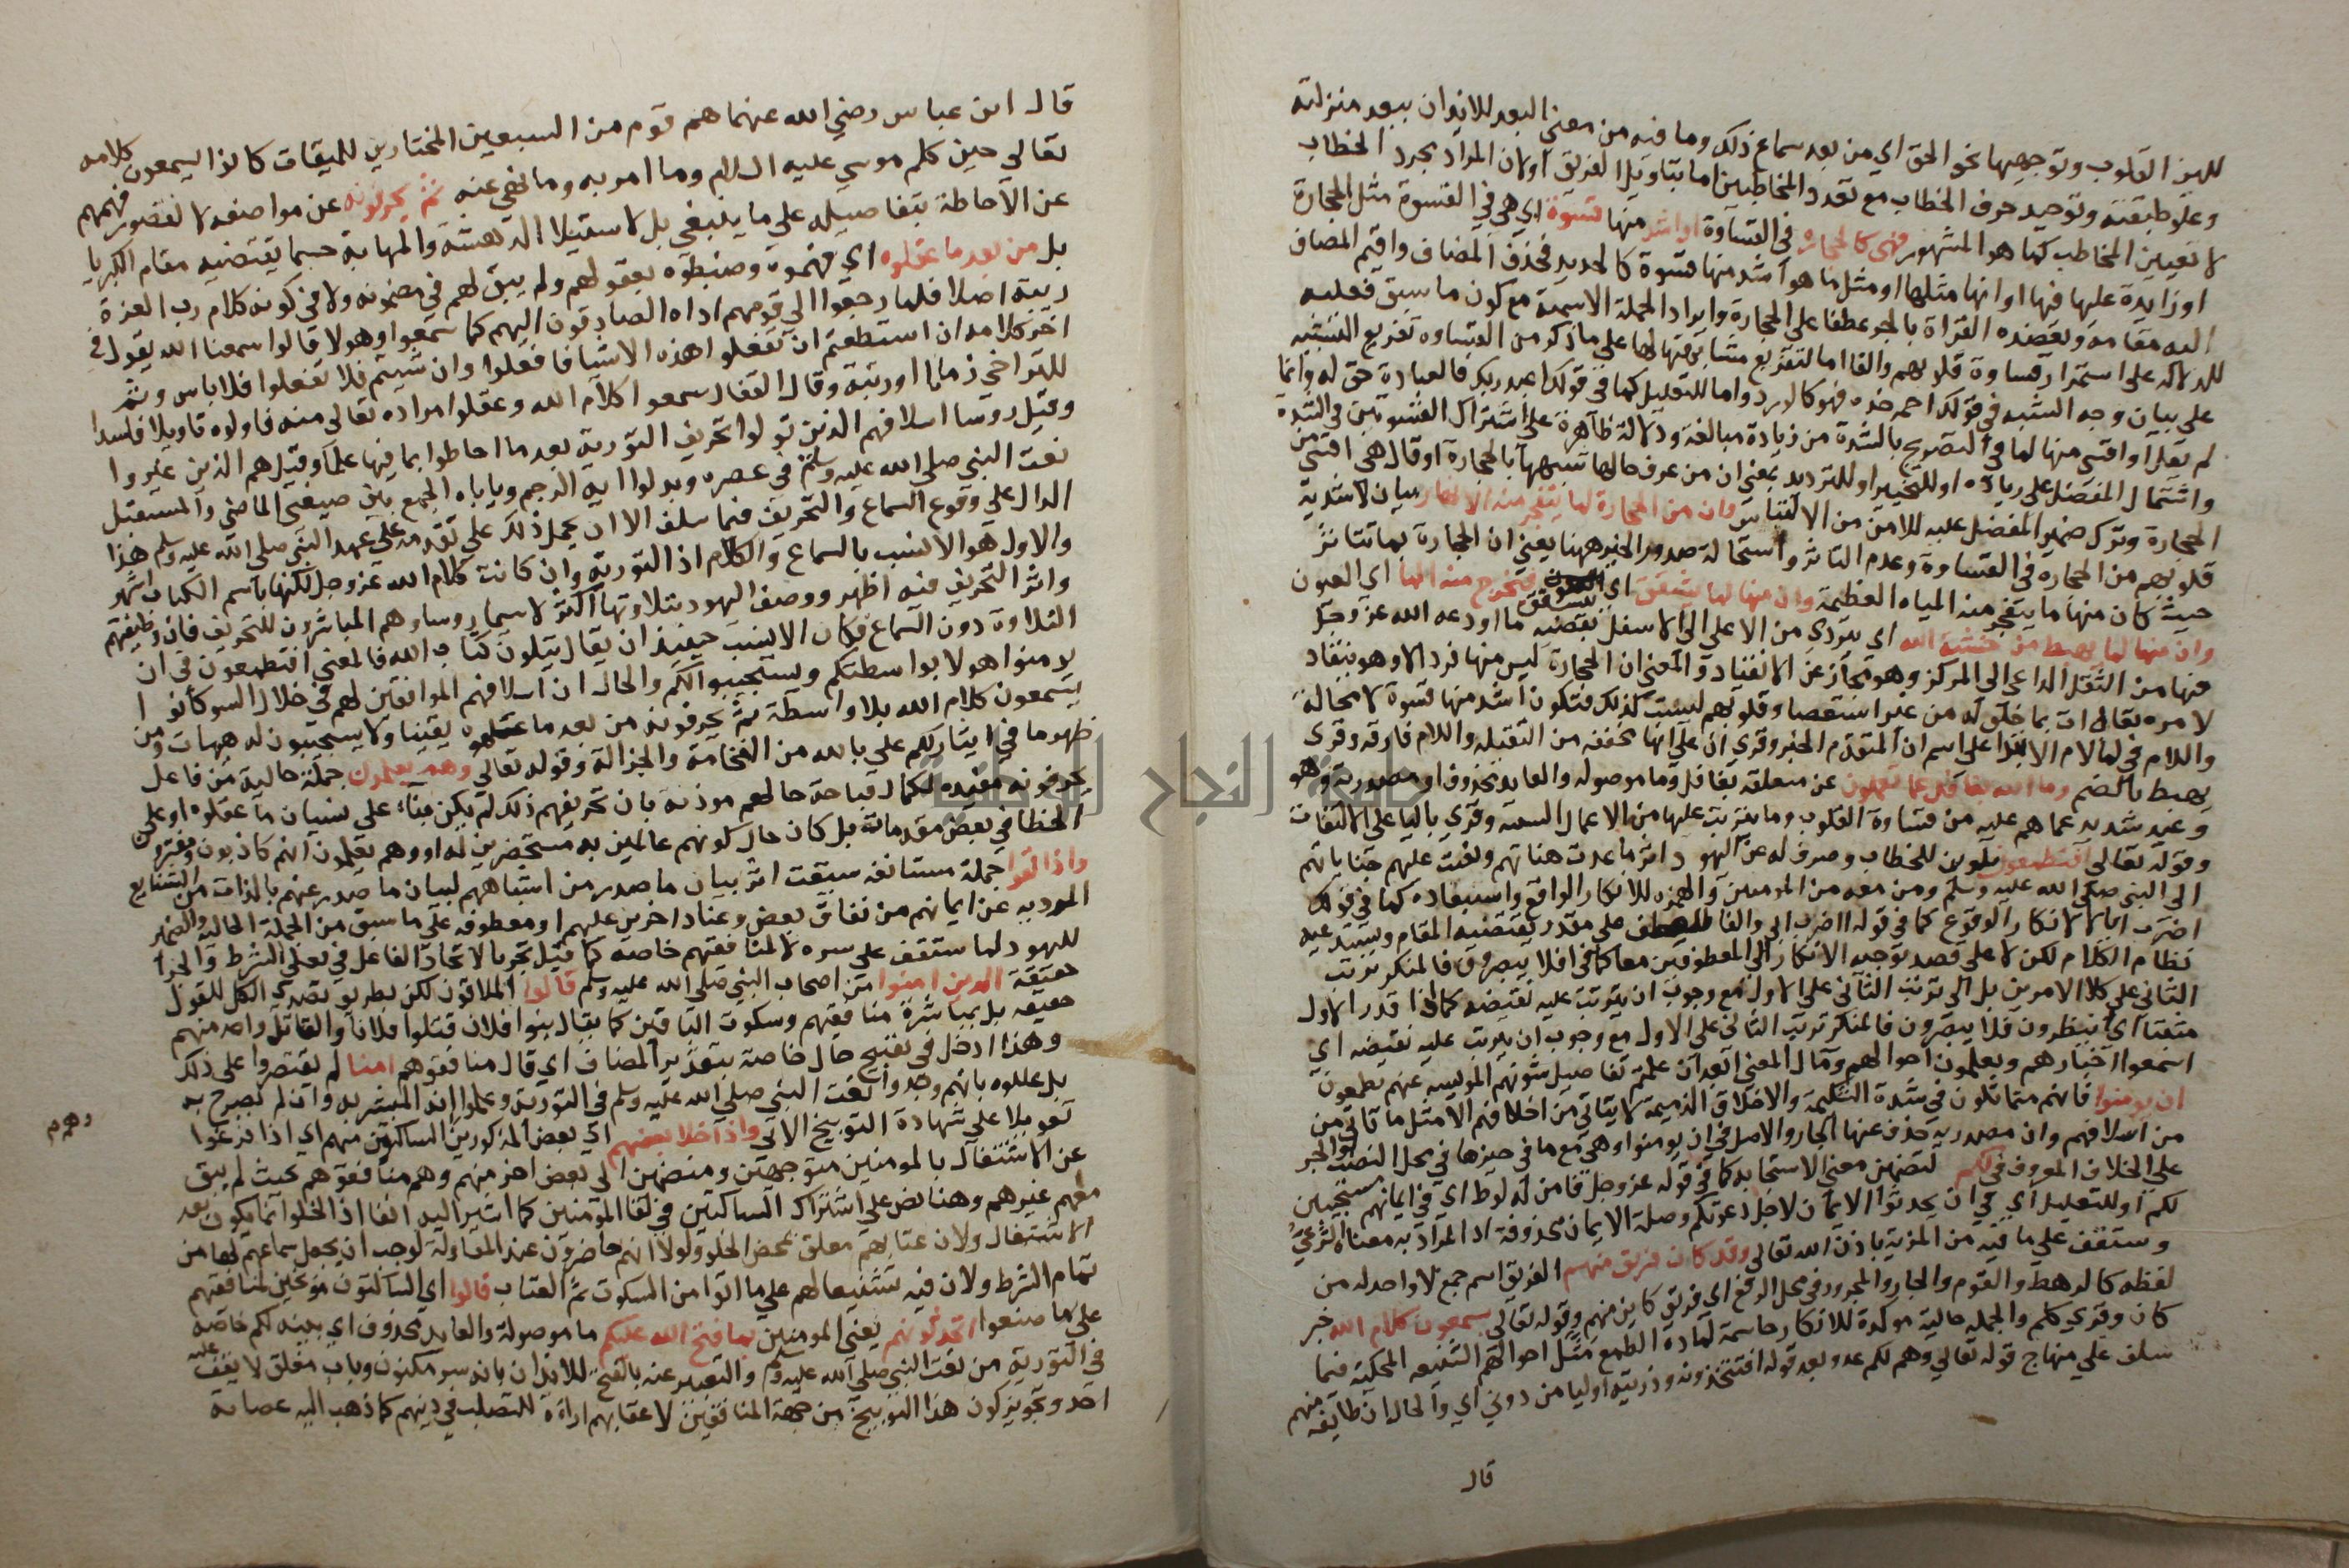 للين القلوب وتوجهها نحو الحق اي من بعد سماع ذلك وما فيه من معنى البعد للايذان ببعد منزلته
وعلو طبقته وتوحيد حرف الخطاب مع تعدد المخاطبين اما بتاويل الفريق اولان المراد مجرد الخطاب
لا تعيين المخاطب كما هو المشهور فهي كالحجارة في القساوة او اشد منها قسوة اي هي في القسوة مثل الحجارة
او زايدة عليها فيها او انها مثلها او مثل ما هو اشد منها قسوة كالحديد فحذف المضاف واقيم المضاف
اليه مقامه ويعضده القراة بالجر عطفا على الحجارة وايراد الجملة الاسمية مع كون ما سبق فعليه
للدلالة على استمرار قساوة قلوبهم والفا اما لتفريع مشابهتها لها على ما ذكر من القساوه تفريع التشبيه
على بيان وجه الشبه في قولك احمر خده فهو كالورد واما للتعليل كما في قولك اعبد ربك فالعبادة حق له وانما
لم يقل او اقسى منها لما في التصريح بالشدة من زيادة مبالغة ودلالة ظاهرة على اشتراك القسوتين في الشدة
واشتمال المفضل على زيادة او للتخيير او للترديد بمعنى ان من عرف حالها شبهها بالحجارة او قال هي اقسى من
الحجارة وترك ضمير المفضل عليه للامن من الالتباس وان من الحجارة لما يتفجر منه الانهار بيان لاشدية
قلوبهم من الحجارة في القساوة وعدم التاثر واستحالة صدور الخير منها يعني ان الحجارة ربما تتاثر
حيث كان منها ما يتفجر منه المياه العظيمة وان منها لما يشقق اي يتشقق فيخرج منه الما اي العيون
وان منها لما يهبط من خشية الله اي يتردى من الاعلى الى الاسفل بقضيه ما اودعه الله عز وجل
فيها من الثقل الداعي الى المركز وهو مجاز عن الانقياد والمعنى ان الحجارة ليس منها فرد الا وهو ينقاد
لامره تعالى ات بما خلق له من غير استعصا وقلوبهم ليست كذلك فتكون اشد منها قسوة لا محالة
واللام في لما لام الابتدا على اسم ان المتقدم الخبر وقري ان على انها مخففه من الثقيلة واللام فارقه وقرى
يهبط بالضم وما الله بغافل عما تعملون عن متعلقه بغافل وما موصوله والعايد محذوف او مصدرية وهو
وعيد شديد عما هم عليه من قساوة القلوب وما يترتب عليها من الاعمال السيه وقري باليا على الالتفات
وقوله تعالى افتطمعون تلوين للخطاب وصرف له عن اليهود اثر ما عدت هناتهم ونعيت عليهم جناياتهم
الى النبي صلى الله عليه وسلم ومن معه من المومنين والهمزه للانكار الواقع واستبعاده كما في قولك
اضرب اباك لا لانكار الوقوع كما في قوله ااضرب ابي والفا للعطف على مقدر يقتضيه المقام ويستدعيه
نظام الكلام لكن لا على قصد توجيه الانكار الى المعطوفين معا كما في افلا يبصرون فالمنكر ترتب
الثاني على كلا الامرين بل الى ترتب الثاني على الاول مع وجوب ان يترتب عليه نقيضه كما اذا قدر الاول
منفيا اي اتنظرون فلا يبصرون فالمنكر ترتب الثاني على الاول مع وجوب ان يترتب عليه نقيضه اي
اسمعوا اخبارهم وتعلمون احوالهم ومآل المعنى ابعد ان علمتم تفاصيل شونهم الموليسه عنهم يطمعون
ان يومنوا فانهم متماثلون في شدة الشكيمة والاخلاق الذميمة لا يتاتى من اخلافهم الا مثل ما تاتى من
من اسلافهم وان مصدريه حذف عنها الجار والاصل في ان يومنوا وهي مع ما في حيزها في محل النصب او الجر
على الخلاف المعروف في لكم لتضمين معنى الاستجابه كما في قوله عز وجل فامن له لوط اي في ايمانهم مستجيبين
لكم او للتعليل اي في ان يحدثوا الايمان لاجل دعوتكم وصلة الايمان محذوفة اذ المراد به معناه الشرعي
وستقف على ما فيه من المزية باذن الله تعالى وقد كان فريق منهم الفريق اسم جمع لا واحد له من
لفظه كالرهط والقوم والجار والمجرور في محل الرفع اي فريق كاين منهم وقوله تعالى يسمعون كلام الله خبر
كان وقري كلم والجمله حالية موكدة للانكار حاسمة لمادة الطمع مثل احوالهم الشنيعه المحكية فيما
سلف على منهاج قوله تعالى وهم لكم عدو بعد قوله افتتخذونه وذريته اوليا من دوني اي والحال ان طايفه منهم
قال
قال ابن عباس رضي الله عنهما هم قوم من السبعين المختارين للميقات كانوا يسمعون كلامه
تعالى حين كلم موسى عليه السلام وما امر به وما نهى عنه ثم يحرفونه عن مواضعه لا لقصور فهمهم
عن الاحاطة بتفاصيله على ما ينبغي بل لاستيلا الدهشة والمهابة حسبما يقتضيه مقام الكبريا
بل من بعد ما عقلوه اي فهموه وضبطوه بعقولهم ولم يبق لهم في مضمونه ولا في كونه كلام رب العزة
ريبة اصلا فلما رجعوا الى قومهم اداه الصادقون اليهم كما سمعوا وهولا قالوا سمعنا الله يقول في
اخر كلامه ان استطعتم ان تفعلوا هذه الاشيا فافعلوا وان شيتم فلا تفعلوا فلا باس وثم
للتراخي زمانا او رتبة وقال القفال سمعوا كلام الله وعقلوا مراده تعالى منه فاولوه تاويلا فاسدا
وقيل روسا اسلافهم الذين تولوا تحريف التورية بعد ما احاطوا بما فيها علما وقيل هم الذين غيروا
نعت النبي صلى الله عليه وسلم في عصره وبدلوا اية الرجم وياباه الجمع بين صيغتي الماضي والمستقبل
الدال على وقوع السماع والتحريف فيما سلف الا ان يحمل ذلك على تقدمه على عهد النبي صلى الله عليه وسلم هذا
والاول هو الانسب بالسماع والكلام اذ التورية وان كانت كلام الله عز وجل لكنها باسم الكتاب اشهر
واثر التحريف فيه اظهر ووصف اليهود بتلاوتها اكثر لا سيما روساوهم المباشرون للتحريف فان وظيفتهم
التلاوة دون السماع فكان الانسب حينئذ ان يقال يتلون كتاب الله فالمعنى افتطمعون في ان
يومنوا هولا بواسطتكم ويستجيبوا لكم والحال ان اسلافهم الموافقين لهم في خلال السو كانوا
يسمعون كلام الله بلا واسطة ثم يحرفونه من بعد ما عقلوه يقينا ولا يستجيبون له هيهات ومن
ظهوما في ايثار لكم على بالله من الفخامة والجزالة وقوله تعالى وهم يعلمون جملة حالية من فاعل
يحرفونه مفيده لكمال قباحة حالهم موذنة بان تحريفهم ذلك لم يكن بناء على نسيان ما عقلوه او على
الخطا في بعض مقدماته بل كان حال كونهم عالمين به مستحضرين له او وهم يعلمون انهم كاذبون ومفترو
واذا لقوا جملة مستانفه سيقت اثر بيان ما صدر من اشباههم لبيان ما صدر عنهم بالذات من الشنايع
المودبه عن ايمانهم من نفاق بعض وعناد اخرين عليهم او معطوفه على ما سبق من الجملة الحالية والضمير
لليهود لما ستقف على سره لا لمنافقيهم خاصه كما قيل تحريا لاتحاد الفاعل في فعلي الشرط والجزا
حقيقة الذين امنوا من اصحاب النبي صلى الله عليه وسلم قالوا الملاقون لكن بطريق تصدي الكل للقول
حقيقه بل بمباشرة منافقيهم وسكوت الباقين كما يقال بنوا فلان قتلوا فلانا والقاتل واحد منهم
وهذا ادخل في تقبيح حال خاصة بتقدير المضاف اي قال منافقوهم امنا لم تقتصروا على ذلك
بل عللوه بانهم وجدوا نعت النبي صلى الله عليه وسلم في التورية وعلموا انه المبشر به وان لم يصرح به
تعويلا على شهادة التوبيخ الاتي واذا خلا بعضهم اي بعض المذكورين الساكتين منهم اي اذا فرغوا
عن الاشتغال بالمومنين متوجهين ومنضمين الى بعض اخر منهم وهم منافقوهم بحيث لم يبق
معهم غيرهم وهنا نص على اشتراك الساكتين في لقا المومنين كما اشير اليه انفا اذ الخلو انما يكون بعد
الاشتغال ولان عتابهم معلق بمحض الخلو ولولا انهم حاضرون عند المقاولة لوجب ان يجعل سماعهم لها من
تمام الشرط ولان فيه تشنيعا لهم على ما اتوا من السكوت ثم العتاب قالوا اي الساكتون موبخين لمنافقيهم
على ما صنعوا اتحدثونهم يعني المومنين بما فتح الله عليكم ما موصولة والعايد محذوف اي بينه لكم خاصة
في التورية من نعت النبي صلى الله عليه وسلم والتعبير عنه بالفتح للايذان بانه سر مكنون وباب مغلق لا يقف عليه
احد وتجويز كون هذا التوبيخ من جهة المنافقين لاعقابهم اراءة للتصلب في دينهم كما ذهب اليه عصابة